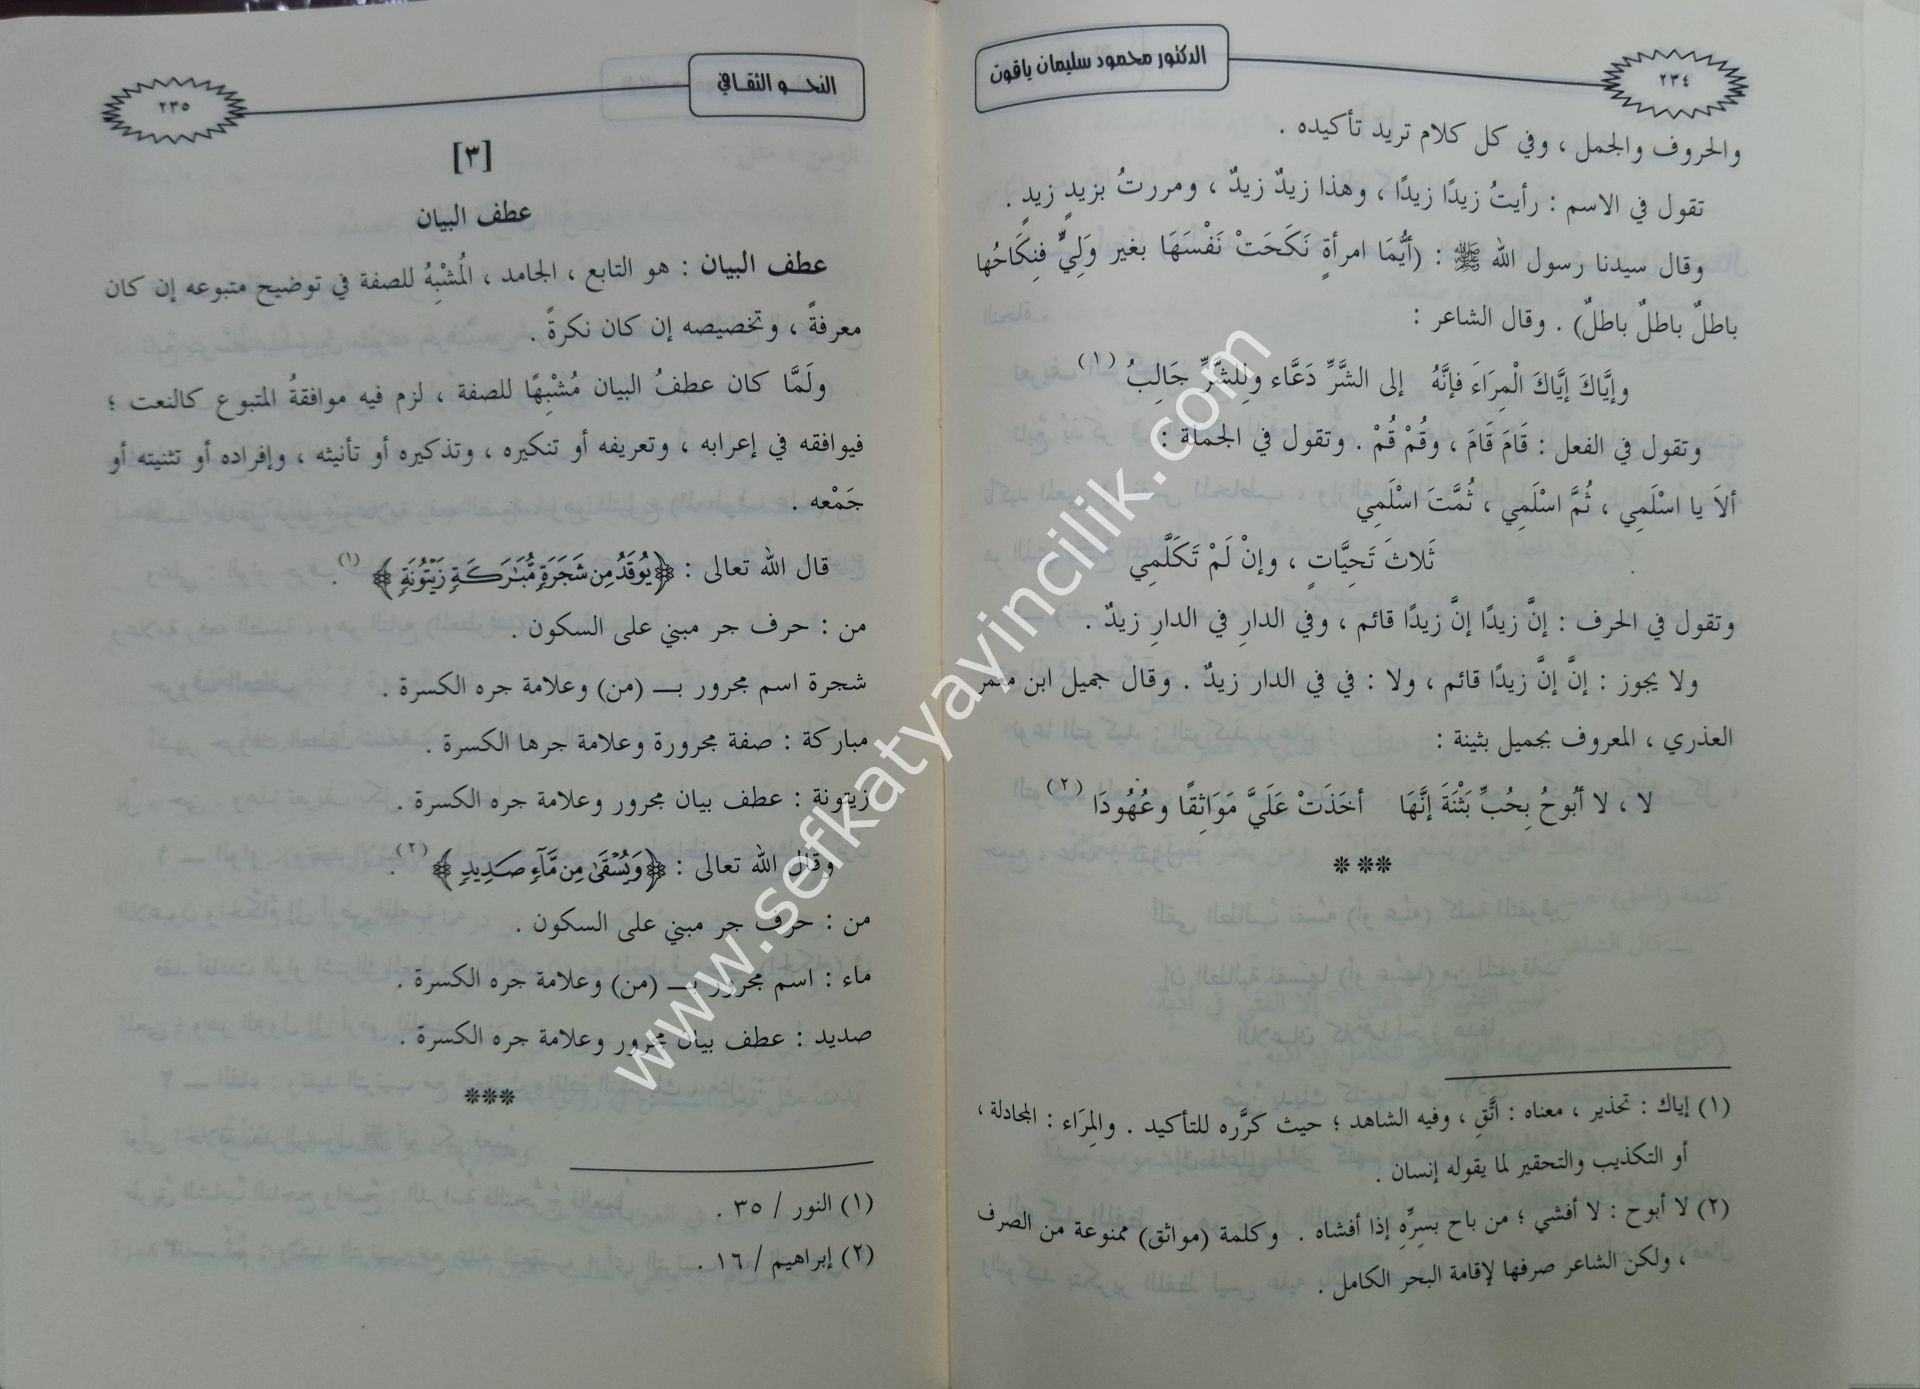 ٢٣٤
الدكتور محمود سليمان ياقوت
والحروف والجمل ، وفي كل كلام تريد تأكيده .
تقول في الاسم : رأيتُ زيدًا زيدًا ، وهذا زيدٌ زيدٌ ، ومررتُ بزيدٍ زيدٍ .
وقال سيدنا رسول الله ﷺ : (أيُّمَا امرأةٍ نَكَحَتْ نَفْسَهَا بغير وَلِيٍّ فنِكَاحُها
باطلٌ باطلٌ باطلٌ) . وقال الشاعر :
وإيَّاكَ إيَّاكَ الْمِرَاءَ فإنَّهُ إلى الشَّرِّ دَعَّاء ولِلشَّرِّ جَالِبُ (١)
وتقول في الفعل : قَامَ قَامَ ، وقُمْ قُمْ . وتقول في الجملة :
ألاَ يا اسْلَمِي ، ثُمَّ اسْلَمِي ، ثُمَّتَ اسْلَمِي
ثَلاثَ تَحِيَّاتٍ ، وإنْ لَمْ تَكَلَّمِي
وتقول في الحرف : إنَّ زيدًا إنَّ زيدًا قائم ، وفي الدارِ في الدارِ زيدٌ .
ولا يجوز : إنَّ إنَّ زيدًا قائم ، ولا : في في الدار زيدٌ . وقال جميل ابن معمر
العذري ، المعروف بجميل بثينة :
لا ، لا أبُوحُ بِحُبِّ بَثْنَةَ إنَّهَا أخَذَتْ عَلَيَّ مَوَاثِقًا وعُهُودَا (٢)
***
(١) إياك : تحذير ، معناه : اتَّقِ ، وفيه الشاهد ؛ حيث كرَّره للتأكيد . والمِرَاء : المجادلة ،
أو التكذيب والتحقير لما يقوله إنسان .
(٢) لا أبوح : لا أفشي ؛ من باح بسِرِّهِ إذا أفشاه . وكلمة (مواثق) ممنوعة من الصرف
، ولكن الشاعر صرفها لإقامة البحر الكامل .
النحو الثقافي
٢٣٥
[٣]
عطف البيان
عطف البيان : هو التابع ، الجامد ، المُشْبِهُ للصفة في توضيح متبوعه إن كان
معرفةً ، وتخصيصه إن كان نكرةً .
ولَمَّا كان عطفُ البيان مُشْبِهًا للصفة ، لزم فيه موافقةُ المتبوع كالنعت ؛
فيوافقه في إعرابه ، وتعريفه أو تنكيره ، وتذكيره أو تأنيثه ، وإفراده أو تثنيته أو
جَمْعه .
قال الله تعالى : ﴿يُوقَدُ مِن شَجَرَةٍ مُّبَٰرَكَةٍ زَيْتُونَةٍ﴾ (١).
من : حرف جر مبني على السكون .
شجرة اسم مجرور بـــ (من) وعلامة جره الكسرة .
مباركة : صفة مجرورة وعلامة جرها الكسرة .
زيتونة : عطف بيان مجرور وعلامة جره الكسرة .
وقال الله تعالى : ﴿وَيُسْقَىٰ مِن مَّآءٍ صَدِيدٍ﴾ (٢).
من : حرف جر مبني على السكون .
ماء : اسم مجرور بـــ (من) وعلامة جره الكسرة .
صديد : عطف بيان مجرور وعلامة جره الكسرة .
***
(١) النور / ٣٥ .
(٢) إبراهيم / ١٦ .
www.sefkatyayincilik.com